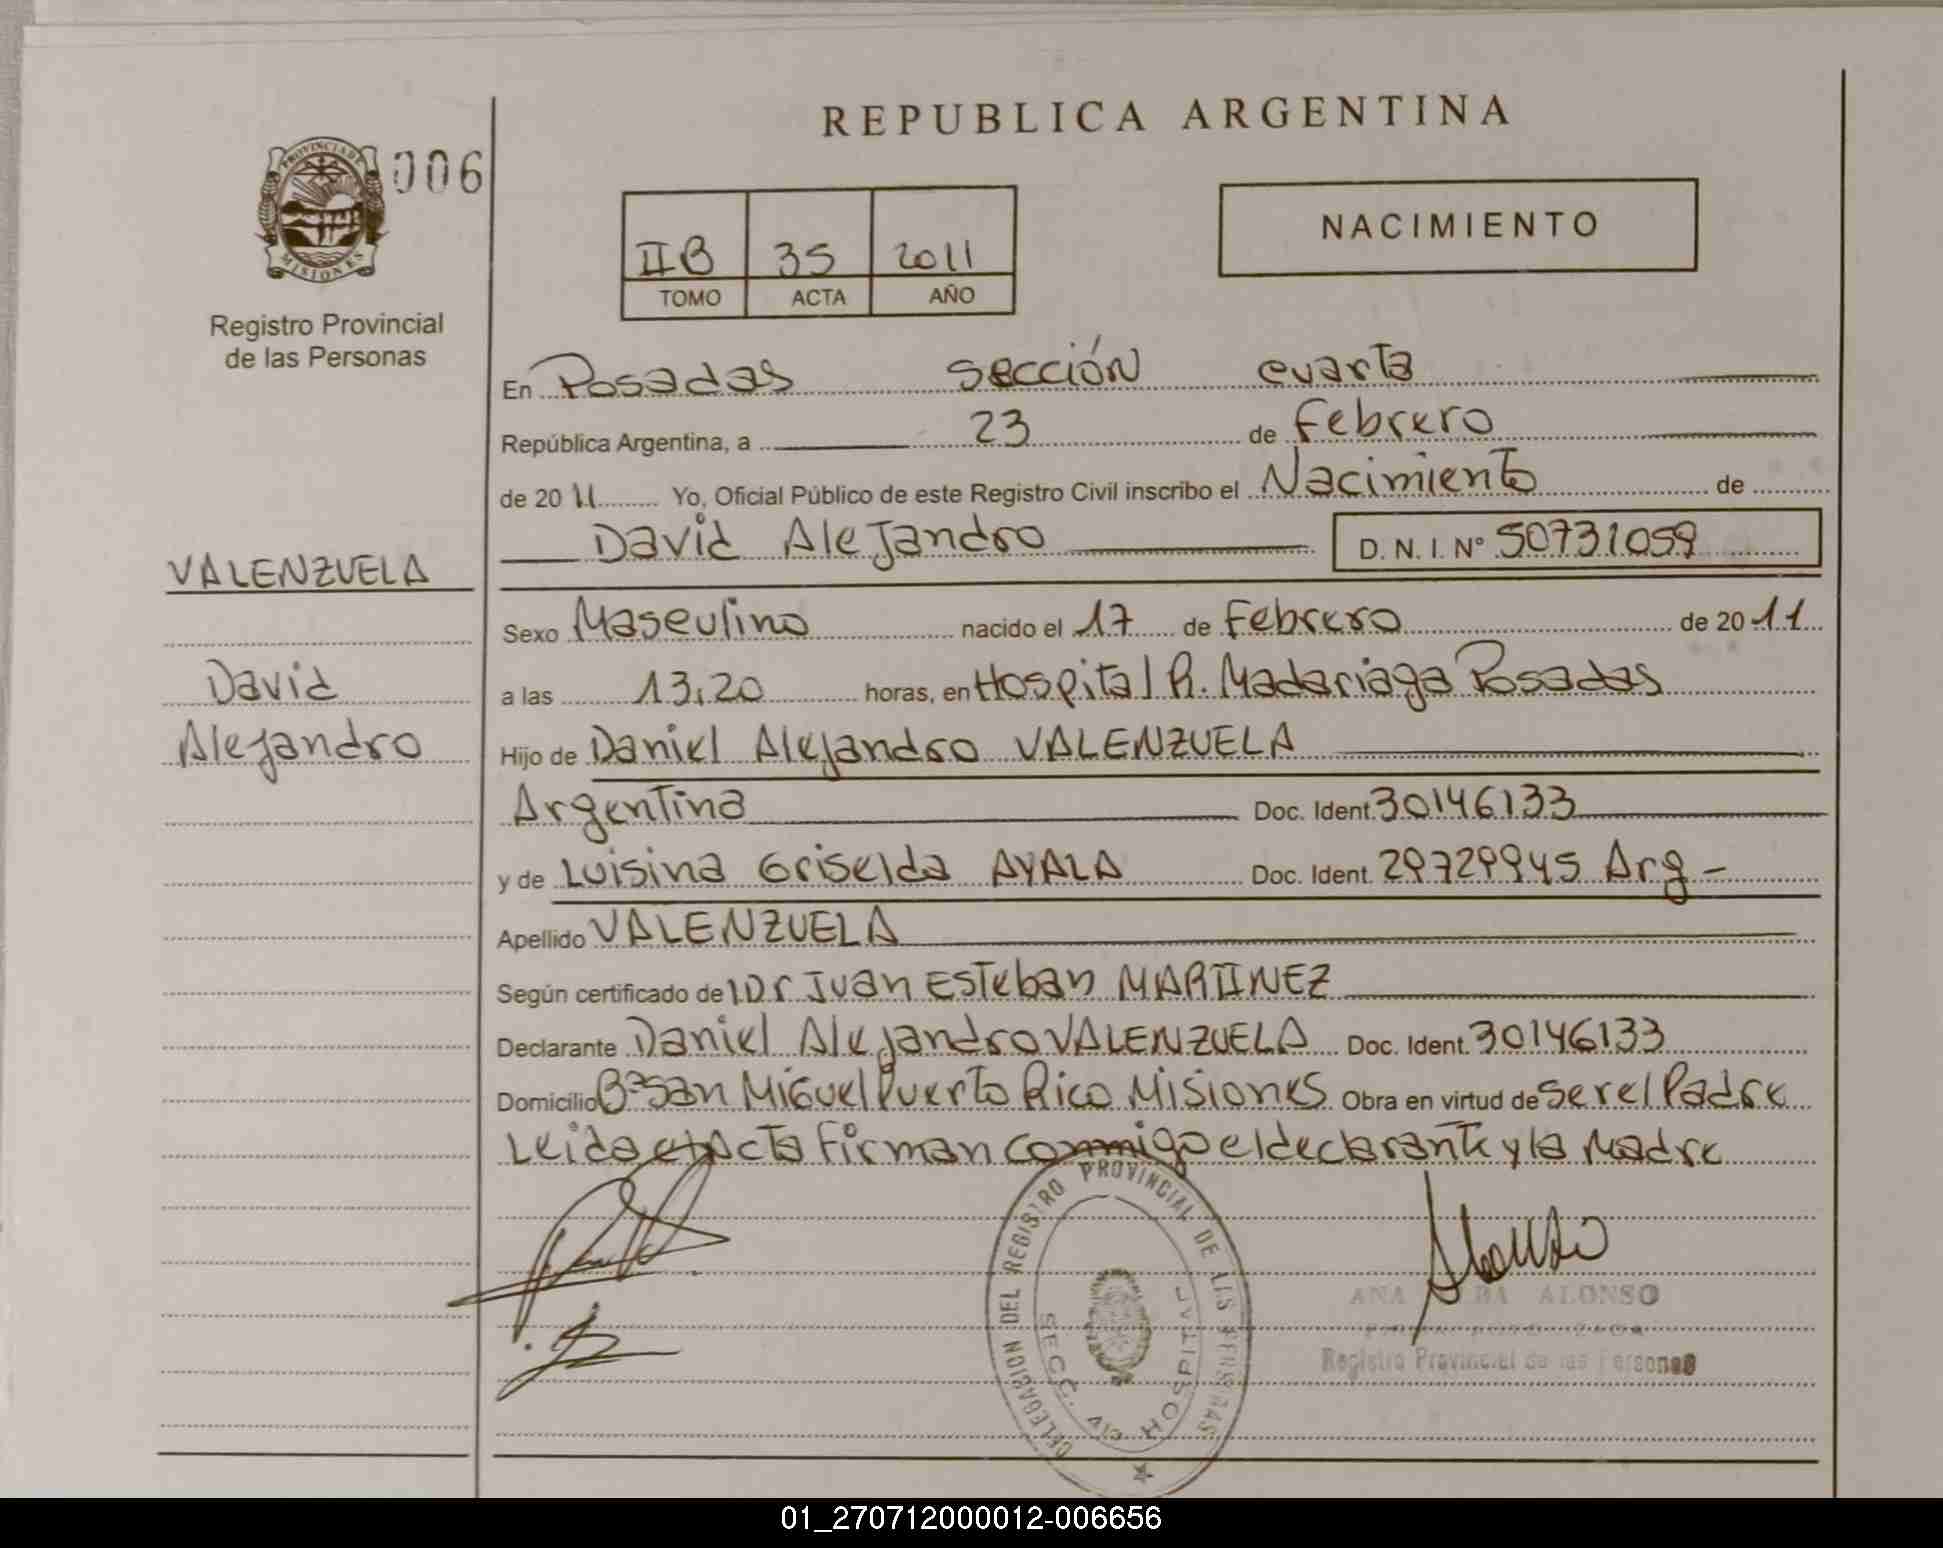 REPUBLICA ARGENTINA
PROVINCIA DE
MISIONES
006
NACIMIENTO
II B 35 2011
TOMO ACTA AÑO
Registro Provincial
de las Personas
En Posadas sección cuarta
República Argentina, a 23 de Febrero
de 2011 Yo, Oficial Público de este Registro Civil inscribo el Nacimiento de
David Alejandro D. N. I. Nº 50731059
VALENZUELA
David
Alejandro
Sexo Masculino nacido el 17 de Febrero de 2011
a las 13,20 horas, en Hospital R. Madariaga Posadas
Hijo de Daniel Alejandro VALENZUELA
Argentina Doc. Ident. 30146133
y de Luisina Griselda AYALA Doc. Ident. 29729945 Arg -
Apellido VALENZUELA
Según certificado del Dr Juan Esteban MARTINEZ
Declarante Daniel Alejandro VALENZUELA Doc. Ident. 30146133
Domicilio Bº San Miguel Puerto Rico Misiones Obra en virtud de ser el Padre
Leida el Acta Firman conmigo el declarante y la Madre
DELEGACION DEL REGISTRO PROVINCIAL DE LAS PERSONAS
SECC. HOSPITAL
ANA ALONSO
Registro Provincial de las Personas
01_270712000012-006656